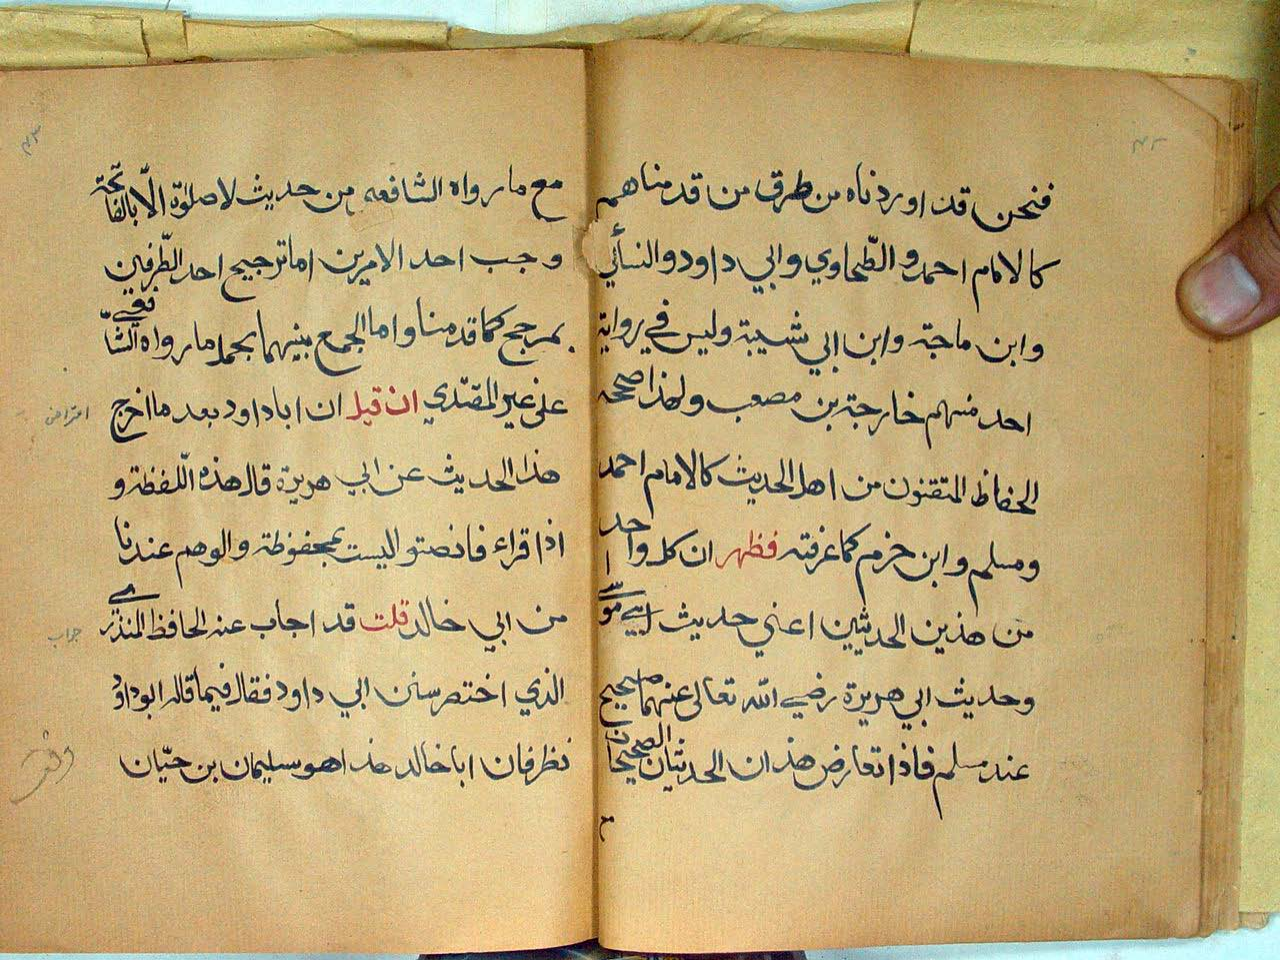 فنحن قد اوردناه من طرق من قدمناهم
كالامام احمد والطّحاوي وابي داود والنسأي
وابن ماجة وابن ابي شيبة وليس في رواية
احد منهم خارجة بن مصعب ولهذا صححه
الحفاظ المتقنون من اهل الحديث كالامام احمد
ومسلم وابن حزم كما عرفته فظهر ان كل واحد
من هذين الحديثين اعني حديث ابي موسى
وحديث ابي هريرة رضي الله تعالى عنهما صحيح
عند مسلم فاذا تعارض هذان الحديثان الصحيحان
مع
مع ما رواه الشافعه من حديث لا صلوة الّا بالفاتحة
وجب احد الامرين اما ترجيح احد الطّرفين
بمرجح كما قدمنا واما الجمع بينهما بحمل ما رواه الشّافعي
على غير المقتدي ان قيل ان ابا داود بعد ما اخرج
هذا الحديث عن ابي هريرة قال هذه اللفظة و
اذا قراء فانصتوا ليست بمحفوظة والوهم عندنا
من ابي خالد قلت قد اجاب عنه الحافظ المنذري
الذي اختصر سنن ابي داود فقال فيما قاله ابو داود
نظر فان ابا خالد هذا هو سليمان بن حيّان
اعتراض
جواب